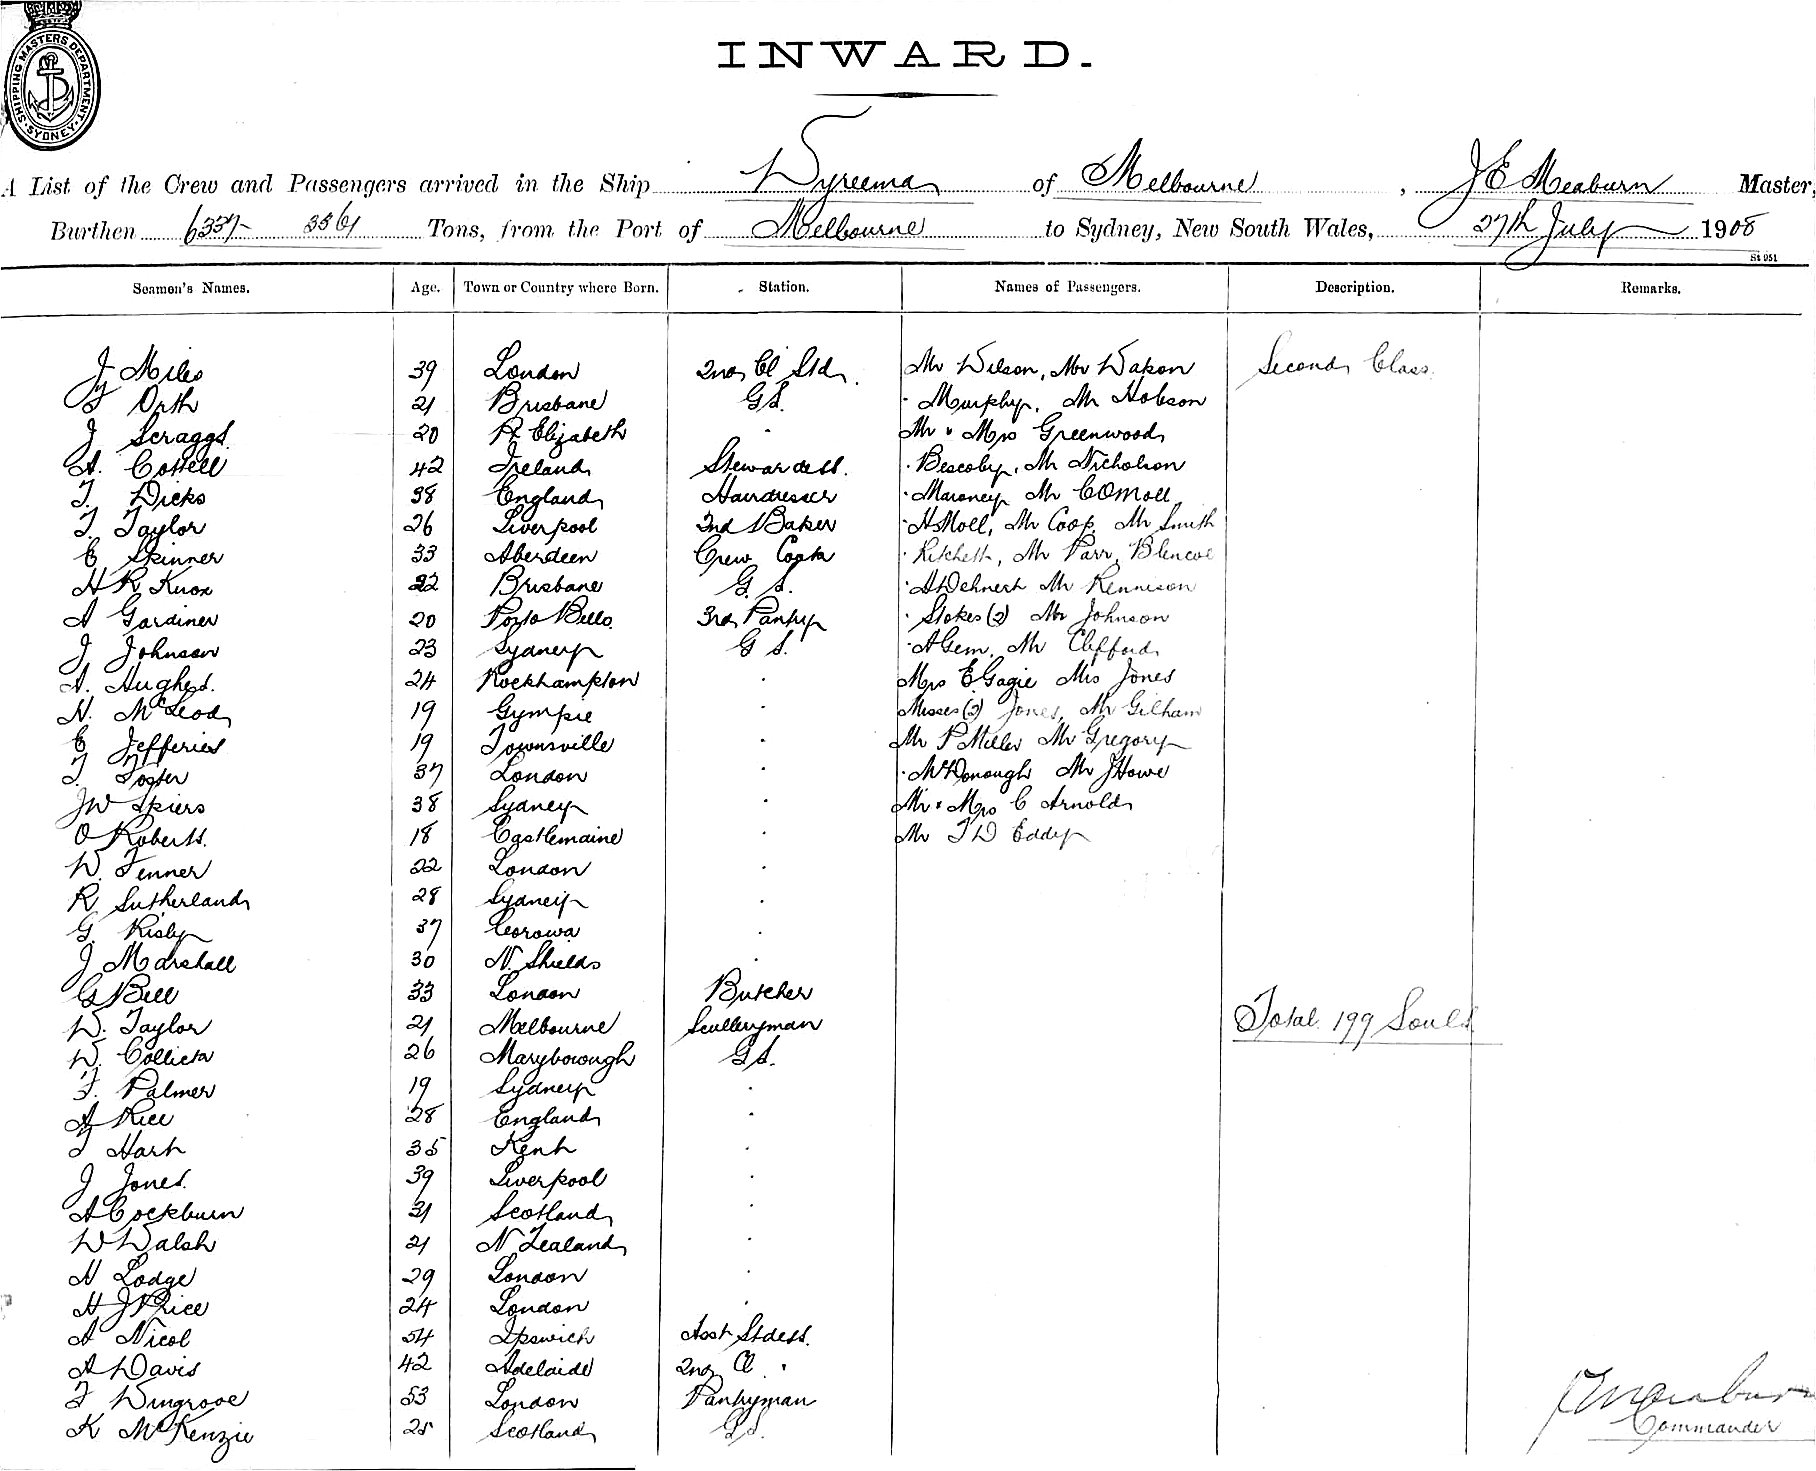 SHIPPING MASTERS DEPARTMENT · SYDNEY ·
INWARD.
A List of the Crew and Passengers arrived in the Ship Wyreema of Melbourne, J E Meaburn Master,
Burthen 6337 - 3361 Tons, from the Port of Melbourne to Sydney, New South Wales, 27th July 1908
St 951
Seamen's Names. Age. Town or Country where Born. Station. Names of Passengers. Description. Remarks.
J Miles 39 London 2nd Cl Std. Mr Wilson, Mr Dakon Second Class
F Orth 21 Brisbane G S. " Murphy, Mr Hobson
J Scraggs 20 Pt Elizabeth " Mr & Mrs Greenwood
A. Cottell 42 Ireland Stewardess. " Bescoby, Mr Nicholson
F. Dicks 38 England Hairdresser " Maroney Mr C O Moll
T. Taylor 26 Liverpool 2nd Baker " H Moll, Mr Coop, Mr Smith
E Skinner 33 Aberdeen Crew Cook " Ritchett, Mr Parr, Blencoe
H R Knox 22 Brisbane G. S. " A Dehnert Mr Rennison
A Gardiner 20 Porto Bello 3rd Pantry " Stokes (2) Mr Johnson
J Johnson 23 Sydney G S. " A Gem, Mr Clifford
A. Hughes. 24 Rockhampton " Mrs E Gagie Mrs Jones
N. McLeod 19 Gympie " Misses (2) Jones, Mr Gilham
E Jefferies 19 Townsville " Mr P Miller Mr Gregory
T. Foster 37 London " " McDonough Mr J Howe
J W Spiers 38 Sydney " Mr & Mrs C Arnold
O Roberts. 18 Castlemaine " Mr T D Eddy
W. Fenner 22 London "
R. Sutherland 28 Sydney "
G. Risby 37 Corowa "
J Marshall 30 N. Shields "
G Bell 33 London Butcher
W. Taylor 21 Melbourne Sculleryman Total 199 Souls
W. Collick 26 Maryborough G S.
F. Palmer 19 Sydney "
A Rice 28 England "
F Hart 35 Kent "
J Jones. 39 Liverpool "
A Cockburn 31 Scotland "
W Walsh 21 N Zealand "
H Lodge 29 London "
H J Price 24 London "
A Nicol 54 Ipswich Asst Stdess.
A Davis 42 Adelaide 2nd Cl "
F Wingrove 53 London Pantryman
K McKenzie 25 Scotland G S.
J E Meaburn
Commander